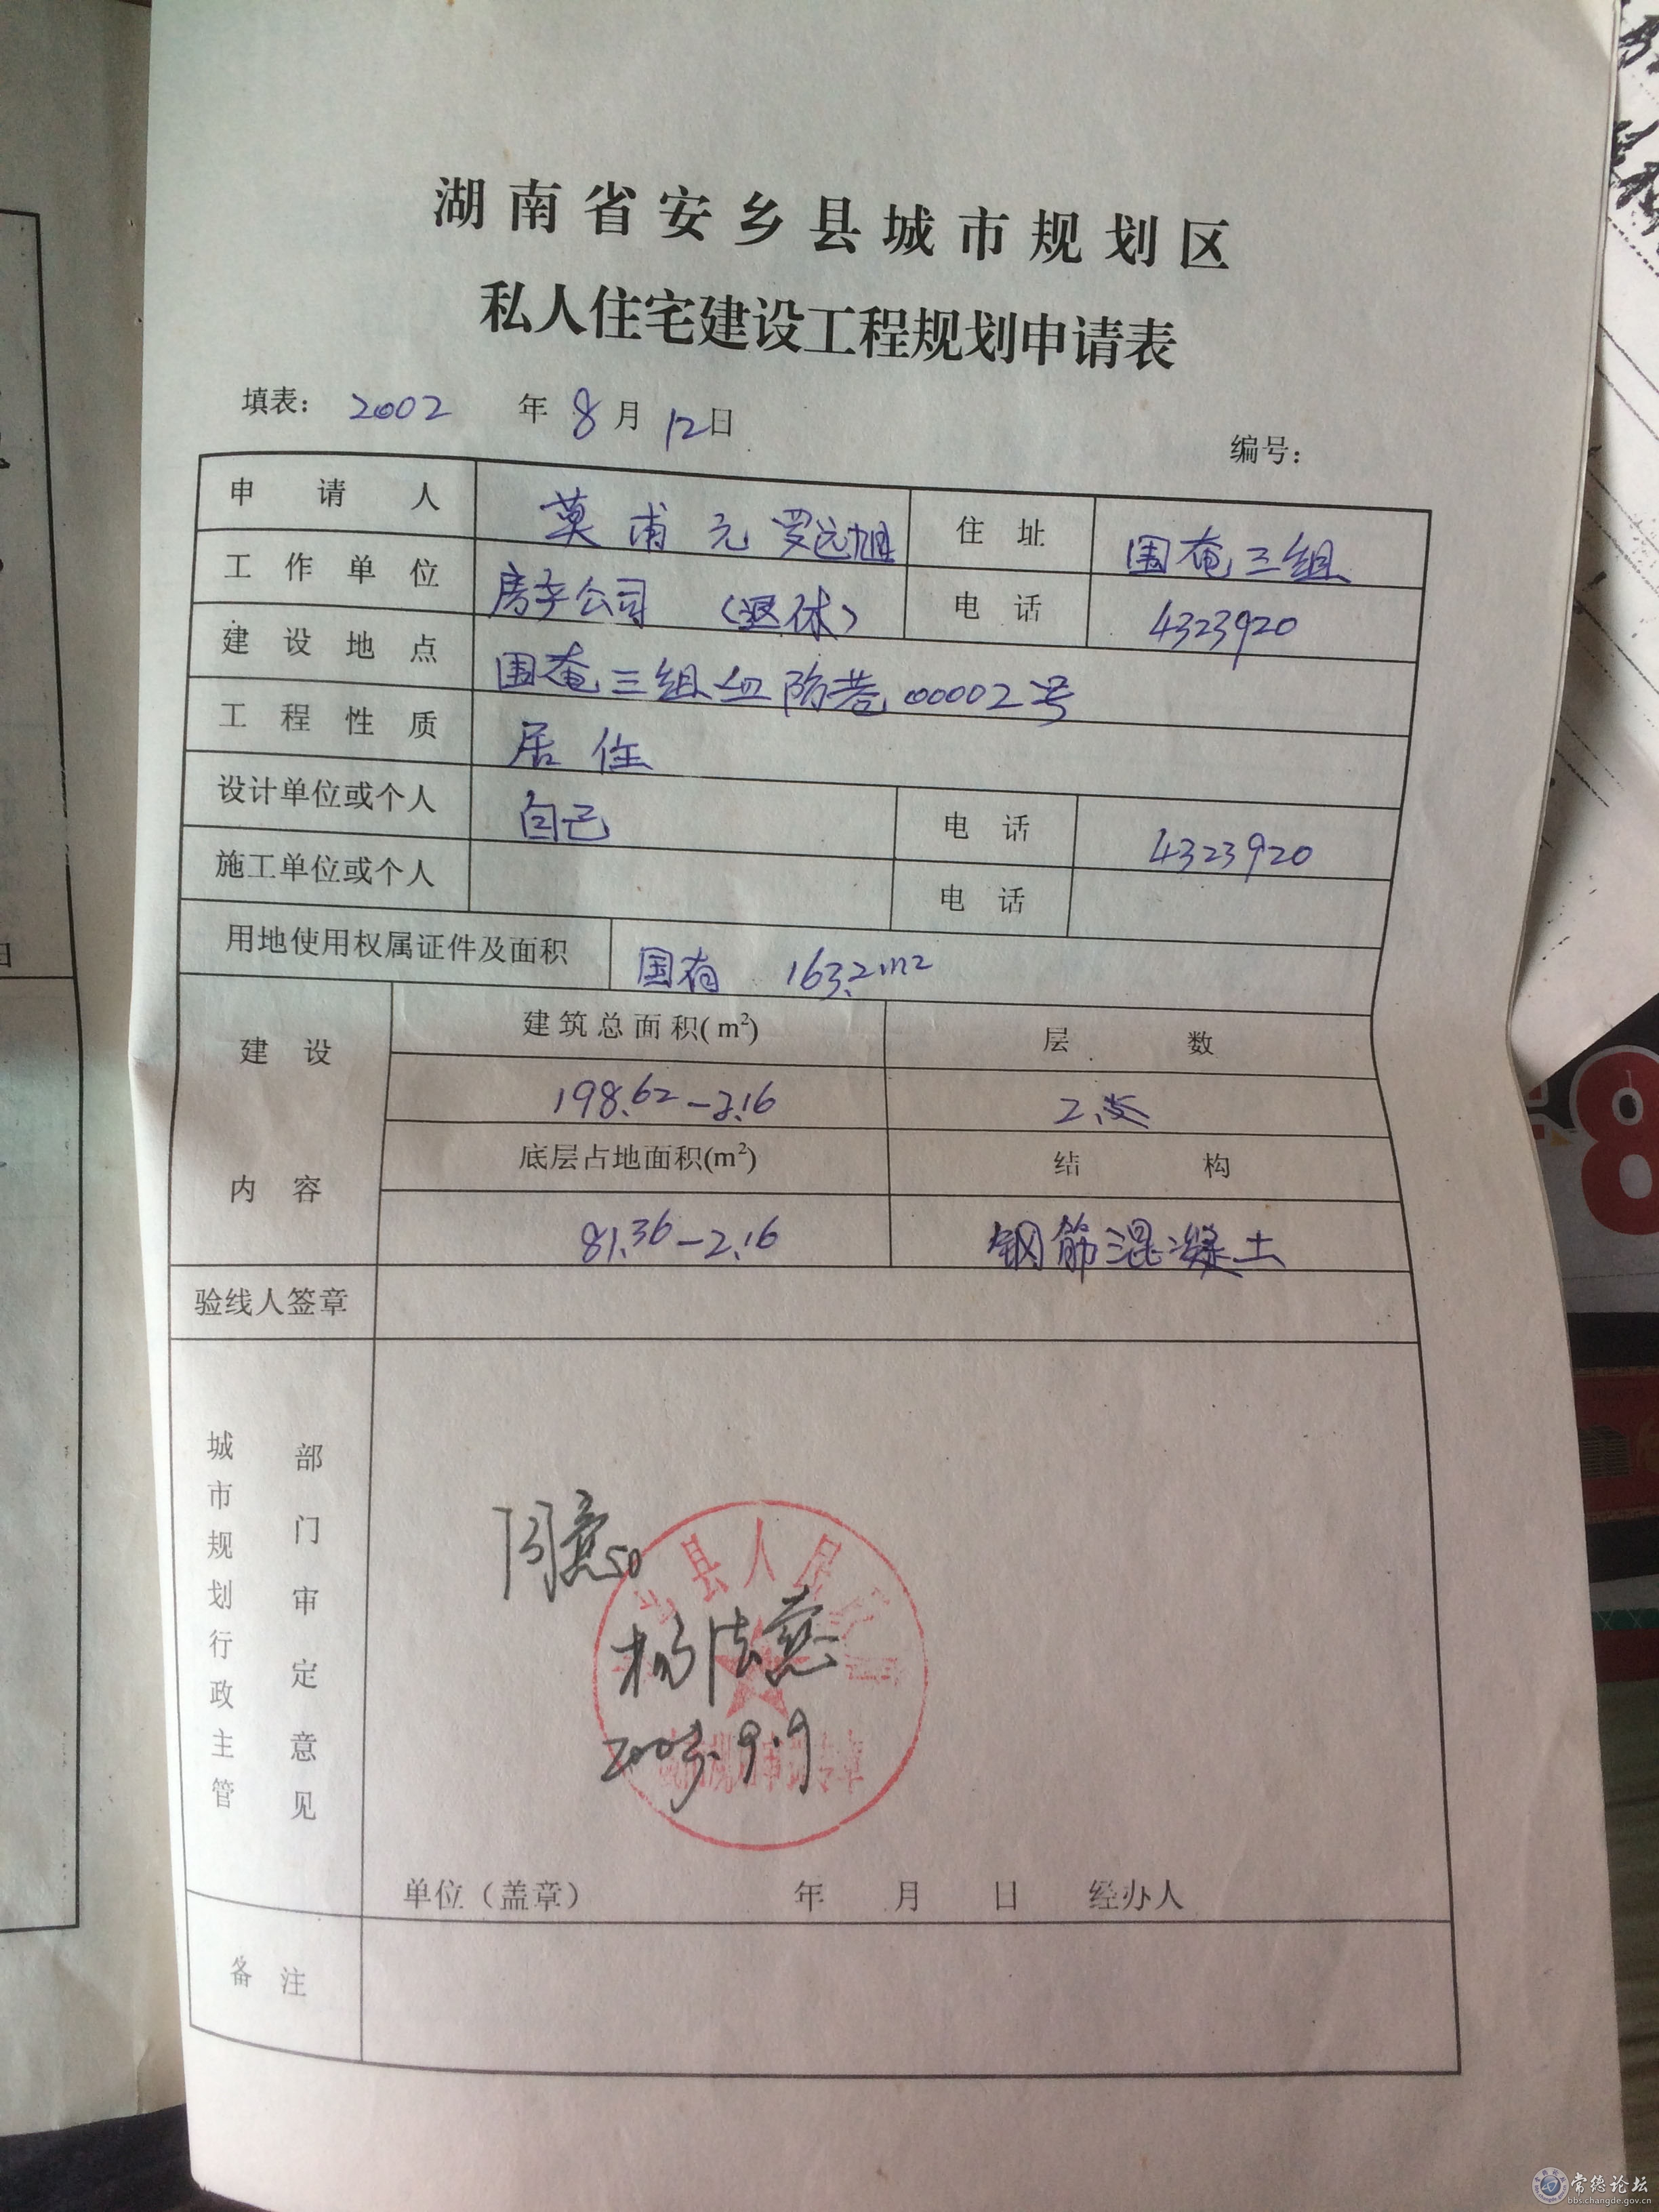 湖南省安乡县城市规划区
私人住宅建设工程规划申请表
填表： 2002 年 8 月 12 日
编号：
申请人 莫甫元 罗远旭 住址 围庵三组
工作单位 房产公司 （退休） 电话 4323920
建设地点 围庵三组血防巷00002号
工程性质 居住
设计单位或个人 自己 电话 4323920
施工单位或个人 电话
用地使用权属证件及面积 国有 163.2m2
建设内容
建筑总面积(m²) 层数
198.62-2.16 2.
底层占地面积(m²) 结构
81.36-2.16 钢筋混凝土
验线人签章
城市规划行政主管部门审定意见
同意
杨法慈
2003.9.9
县人民
专章
单位（盖章） 年 月 日 经办人
备注
常德论坛
bbs.changde.gov.cn
8